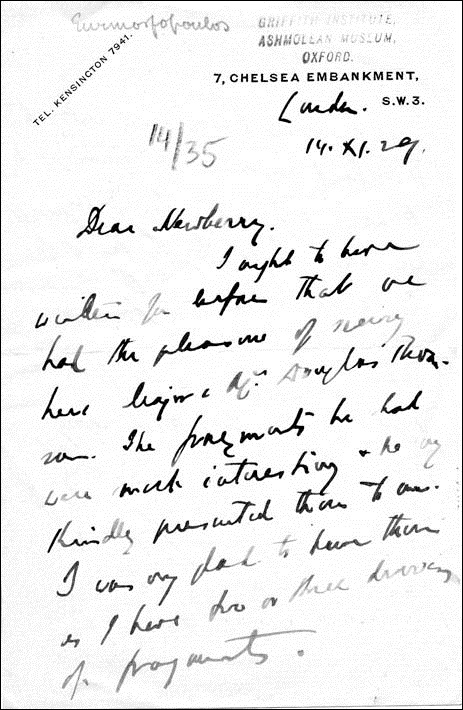 Eumorfopoulos
GRIFFITH INSTITUTE,
ASHMOLEAN MUSEUM,
OXFORD.
TEL. KENSINGTON 7941.
7, CHELSEA EMBANKMENT,
London. S.W.3.
14/35
14.XI.29.
Dear Newberry.
I ought to have
written before that we
had the pleasure of seeing
here Major & Mrs Douglas Thom-
son. The fragments he had
were most interesting & he very
kindly presented them to me.
I was very glad to have them
as I have two or three drawers
of fragments.